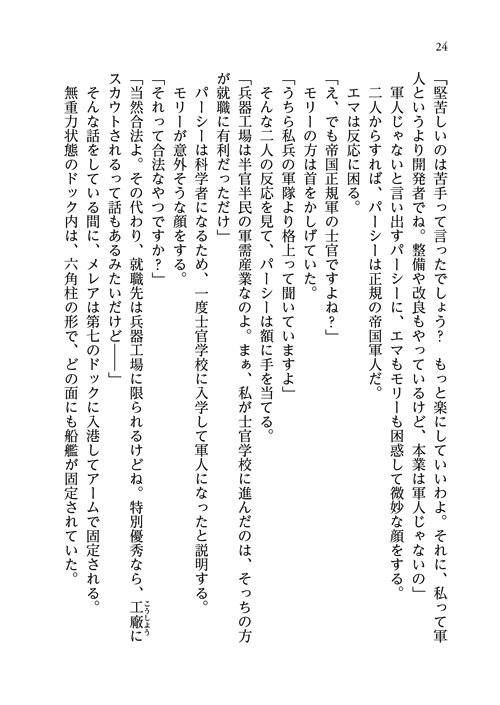 24
「堅苦しいのは苦手って言ったでしょう？　もっと楽にしていいわよ。それに、私って軍
人というより開発者でね。整備や改良もやっているけど、本業は軍人じゃないの」
軍人じゃないと言い出すパーシーに、エマもモリーも困惑して微妙な顔をする。
二人からすれば、パーシーは正規の帝国軍人だ。
エマは反応に困る。
「え、でも帝国正規軍の士官ですよね？」
モリーの方は首をかしげていた。
「うちら私兵の軍隊より格上って聞いていますよ」
そんな二人の反応を見て、パーシーは額に手を当てる。
「兵器工場は半官半民の軍需産業なのよ。まぁ、私が士官学校に進んだのは、そっちの方
が就職に有利だっただけ」
パーシーは科学者になるため、一度士官学校に入学して軍人になったと説明する。
モリーが意外そうな顔をする。
「それって合法なやつですか？」
「当然合法よ。その代わり、就職先は兵器工場に限られるけどね。特別優秀なら、工廠に
こうしょう
スカウトされるって話もあるみたいだけど――」
そんな話をしている間に、メレアは第七のドックに入港してアームで固定される。
無重力状態のドック内は、六角柱の形で、どの面にも船艦が固定されていた。